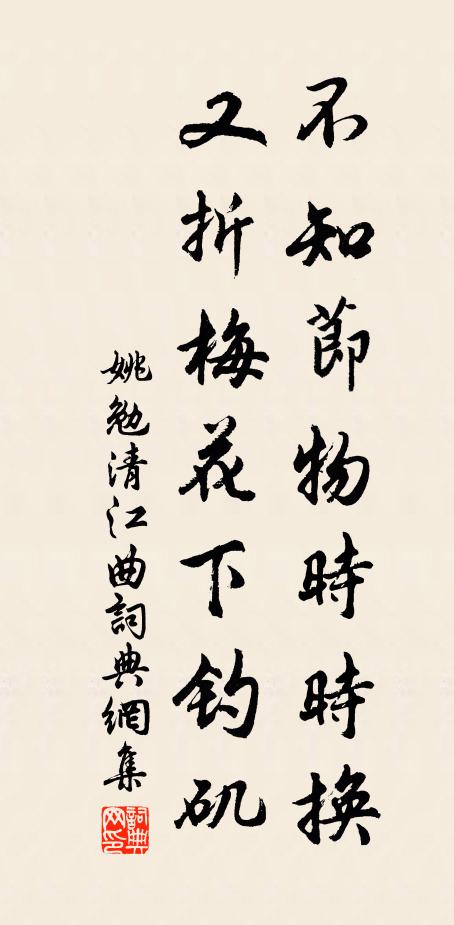 不知節物時時換
又折梅花下钓矶
姚勉清江曲詞典網集
詞典網印